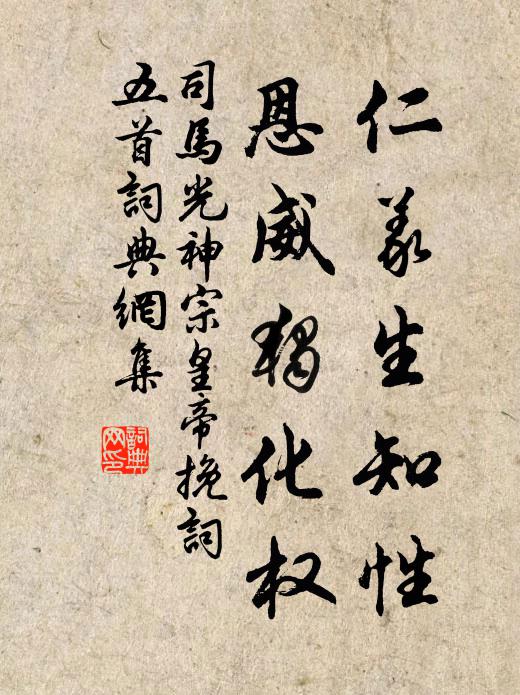 仁義生知性
恩威獨化权
司馬光神宗皇帝挽詞
五首詞典網集
詞典
网印